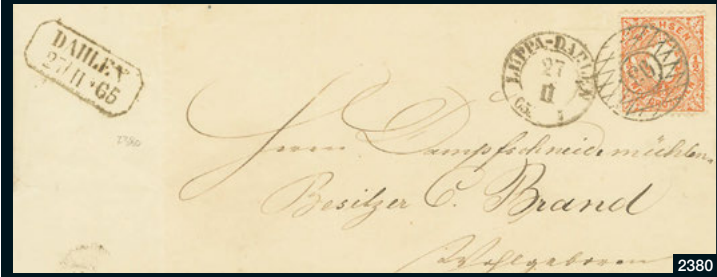 DAHLEN
27 II 65
LUPPA-DAHLEN
27
II
65.
SACHSEN
Herrn Dampfschneidemühlen-
Besitzer C. Brand
Wohlgeboren
2380